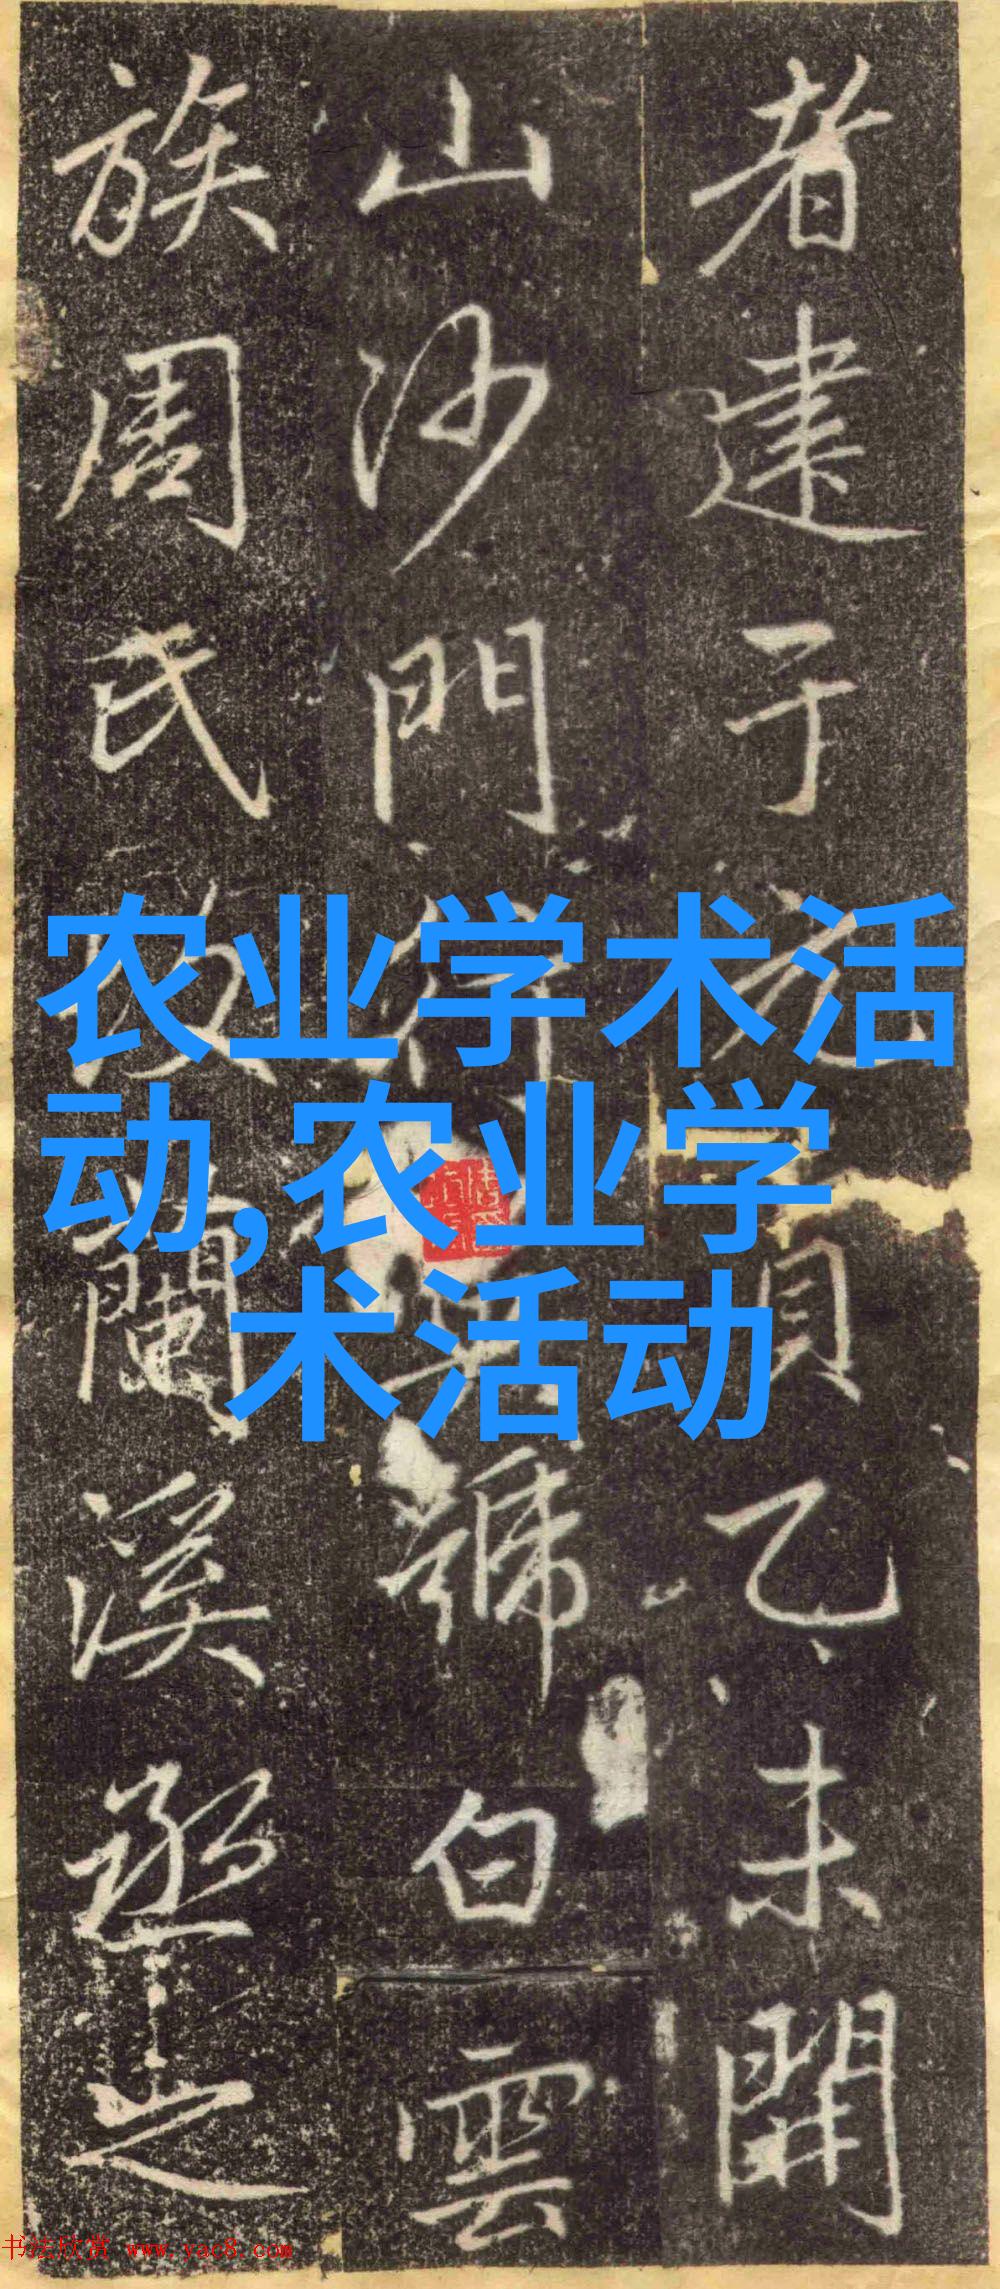 者建于
乙未開
山沙門
號白雲
族周氏
蘭溪丞之
农业学术活
动,农业学
术活动
书法欣赏 www.yac8.com